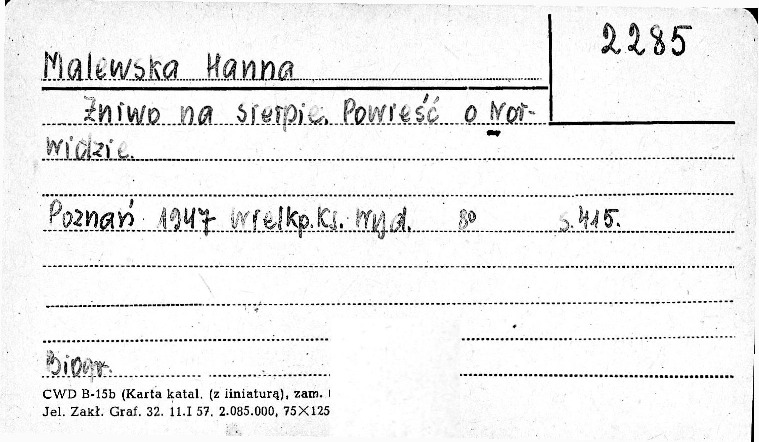 2285
Malewska Hanna
Żniwo na sierpie. Powieść o Nor-
widzie.
Poznań 1947 Wielkp. Ks. Wyd. 8º s. 415.
Biogr.
CWD B-15b (Karta katal. (z liniaturą), zam.
Jel. Zakł. Graf. 32. 11.I 57. 2.085.000, 75×125